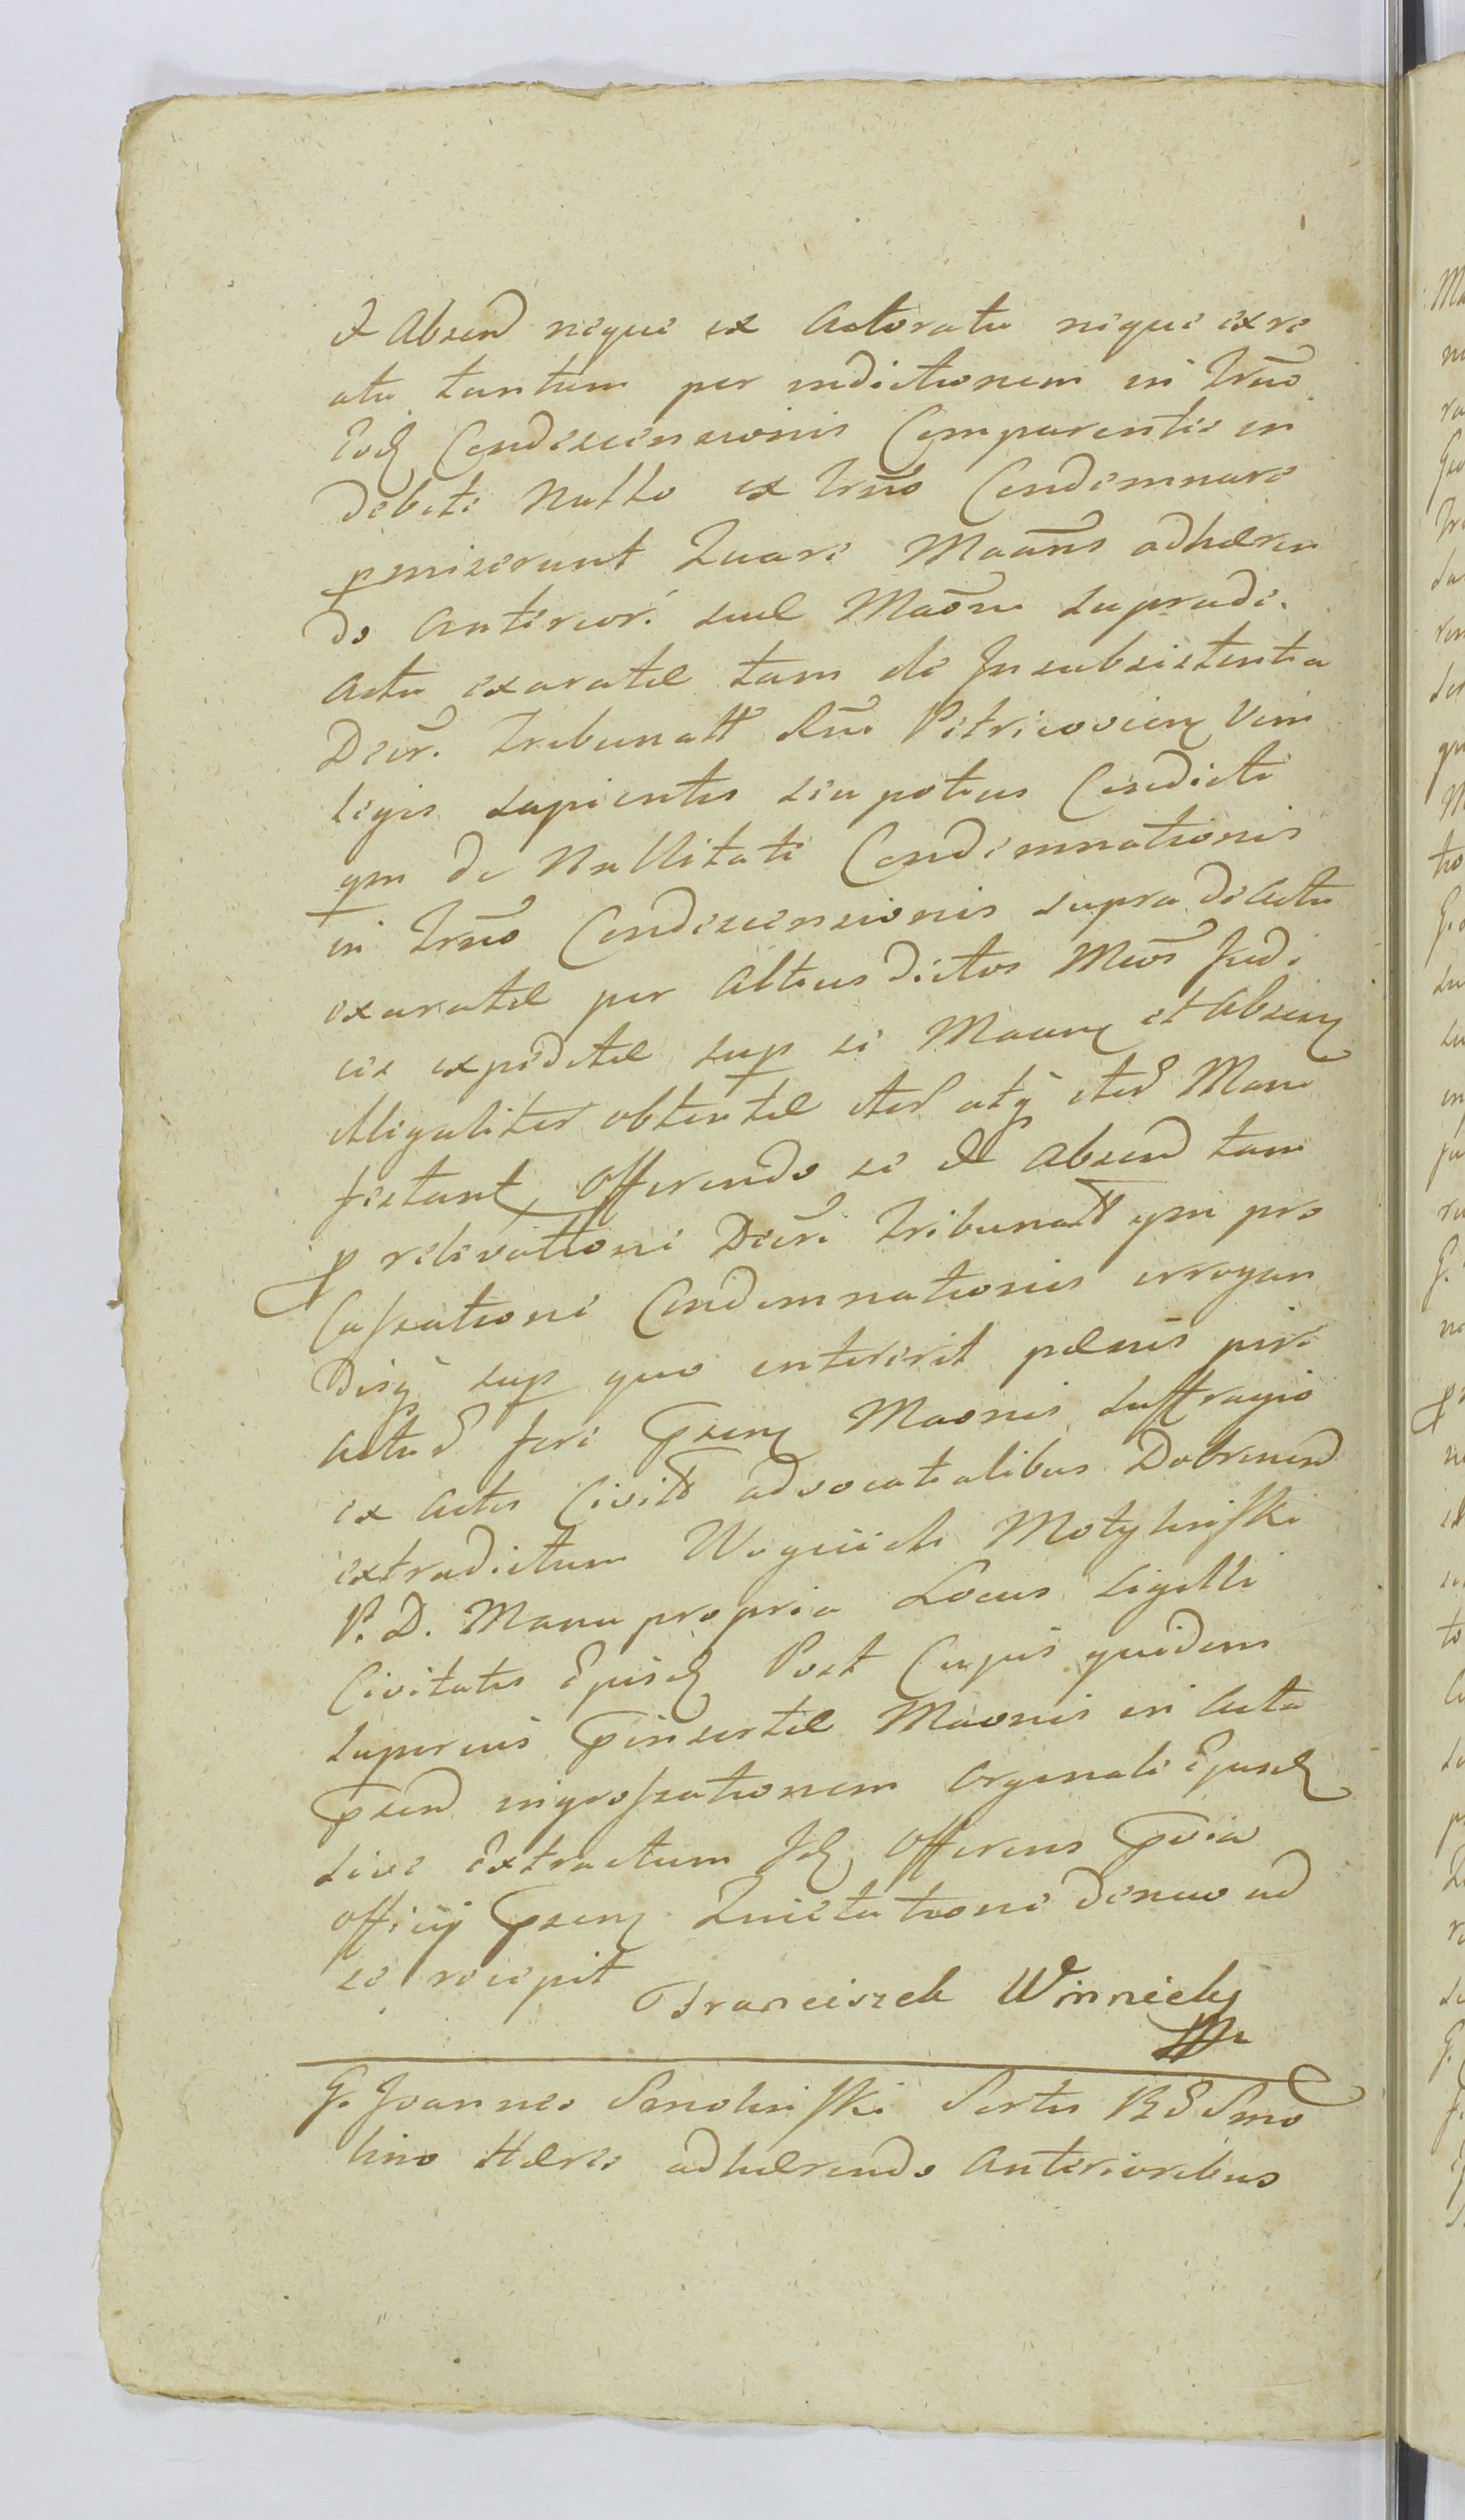 et Absend neque ex Actoratu neque ex re
atu tantum per indictionem in Trno
Eod Condescensionis Comparentes in
debite Nullo ex Trno Condemnare
pmiserunt Quare Maans adhæren
do Anteriori suæ Maoni supra de
Actu exaratæ tam de Insubsistentia
Decr. Tribunall Rni Petricovien Vim
legis sapientis seu potius Cesedicti
qm de Nullitate Condemnationis
in Trno Condescensionis supra de Actu
exaratæ per Altius dictos Mcos Judi
ces expeditæ sup se Maan et Absen
illegaliter obtentæ iter atq iter Mani
festant, Offerendo se et Absend tam
p relevatione Decri Tribunall qm pro
Cassatione Condemnationis irrogan
disq sup quo intererit pænis jure
Acturd fore Psens Maonis Suffragio
ex Actis Civill advocatialibus Dobrinend
extraditum Woyciech Motylinski
V. D. Manu propria Locus Sigilli
Civitatis Ejusd Post Cujus quidem
superius Pinsertæ Maonis in Acta
Psend ingrossationem Orgenale Ejusd
sive Extractum Id Offerens Pvia
Officij Psens Quietatione denuo ad
se recepit
Franciszek Winnicky
mp
G. Joannes Smolinski Sortis B S Smo
lino Hæres adhærendo Anterioribus